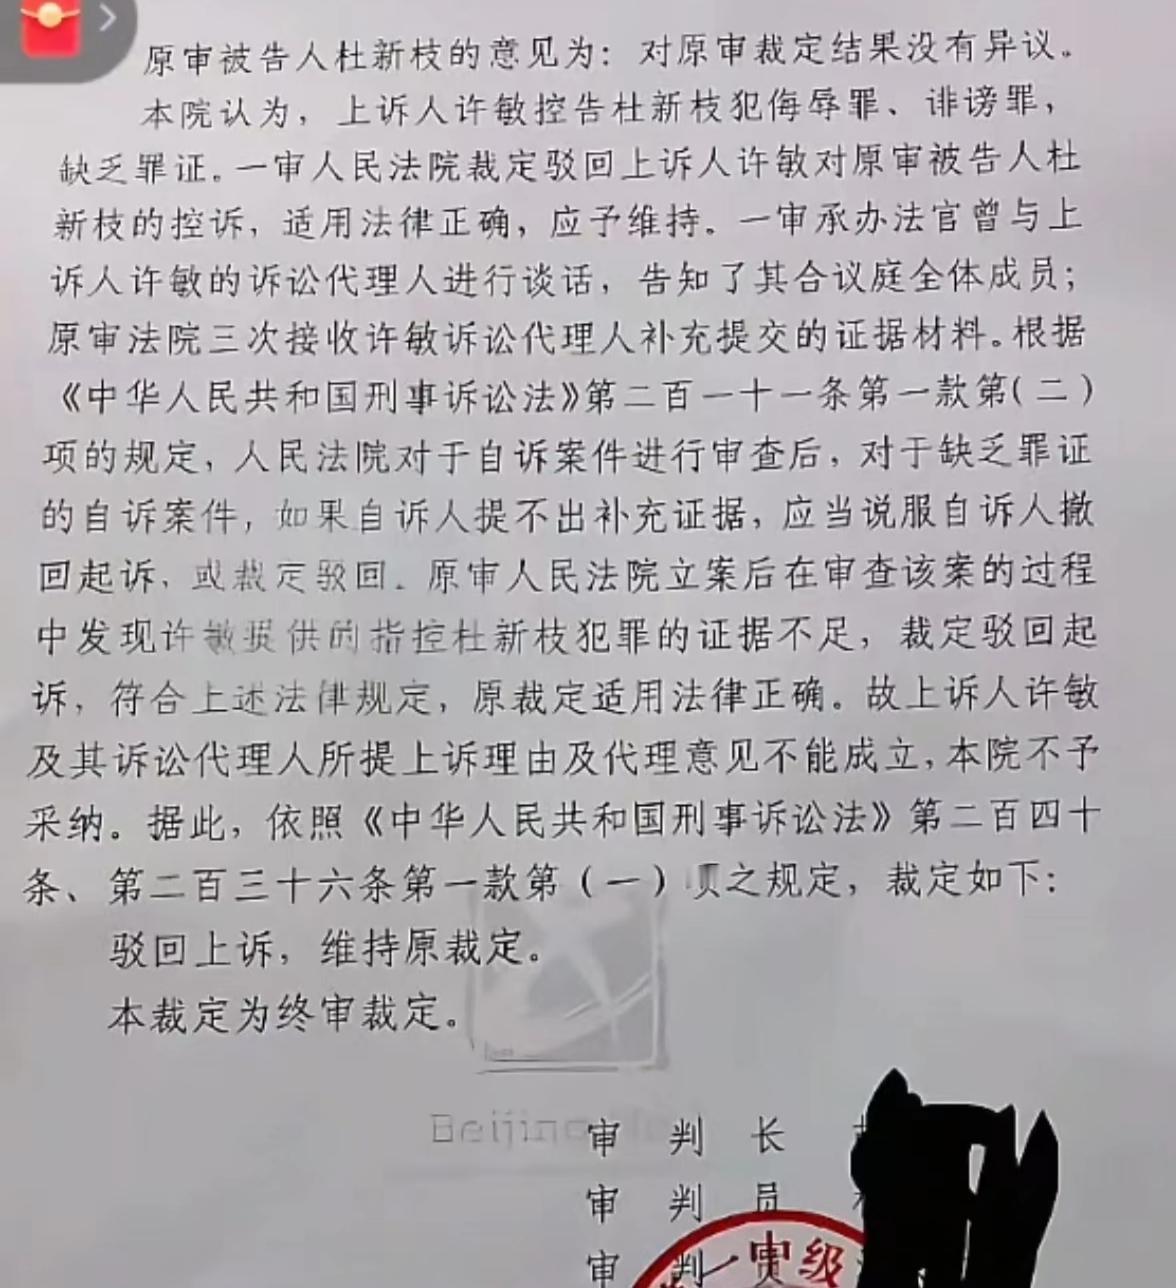 原审被告人杜新枝的意见为：对原审裁定结果没有异议。
本院认为，上诉人许敏控告杜新枝犯侮辱罪、诽谤罪，
缺乏罪证。一审人民法院裁定驳回上诉人许敏对原审被告人杜
新枝的控诉，适用法律正确，应予维持。一审承办法官曾与上
诉人许敏的诉讼代理人进行谈话，告知了其合议庭全体成员；
原审法院三次接收许敏诉讼代理人补充提交的证据材料。根据
《中华人民共和国刑事诉讼法》第二百一十一条第一款第（二）
项的规定，人民法院对于自诉案件进行审查后，对于缺乏罪证
的自诉案件，如果自诉人提不出补充证据，应当说服自诉人撤
回起诉，或裁定驳回。原审人民法院立案后在审查该案的过程
中发现许敏提供的指控杜新枝犯罪的证据不足，裁定驳回起
诉，符合上述法律规定，原裁定适用法律正确。故上诉人许敏
及其诉讼代理人所提上诉理由及代理意见不能成立，本院不予
采纳。据此，依照《中华人民共和国刑事诉讼法》第二百四十
条、第二百三十六条第一款第（一）项之规定，裁定如下：
驳回上诉，维持原裁定。
本裁定为终审裁定。
Beijing
审 判 长
审 判 员
审 判 员
中级